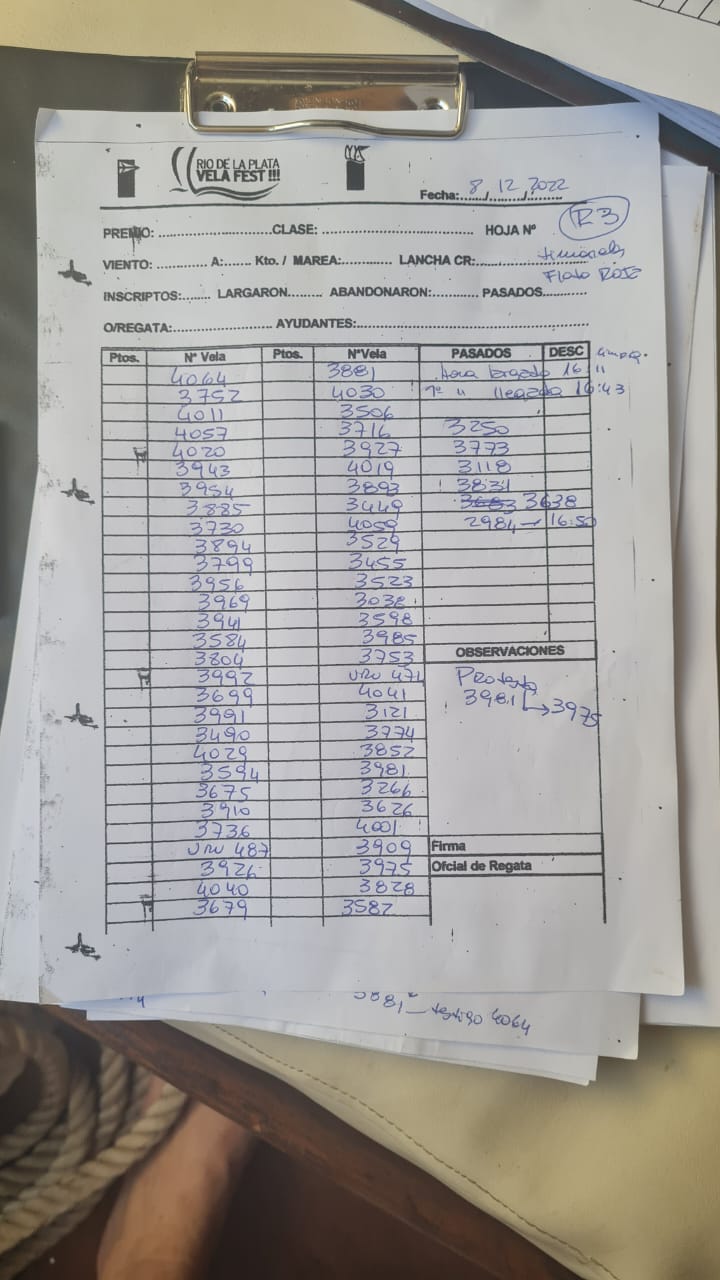 RIO DE LA PLATA
VELA FEST !!!
Fecha: 8/12/2022
PREMIO: CLASE: HOJA Nº R3
VIENTO: A: Kto. / MAREA: LANCHA CR:
INSCRIPTOS: LARGARON ABANDONARON: PASADOS Flota ROJA
O/REGATA: AYUDANTES:
Ptos. Nº Vela Ptos. NºVela PASADOS DESC
4064 3881 Hora largada 16:11
3752 4030 1º " llegada 16:43
4011 3506
4057 3716 3250
4020 3927 3773
3943 4019 3118
3954 3893 3831
3885 3449 3683 3638
3730 4059 2984 → 16:50
3894 3529
3799 3455
3956 3523
3969 3038
3941 3598
3584 3985
3804 3753 OBSERVACIONES
3992 URU 471 Protesta
3699 4041 3981 → 3975
3991 3121
3490 3774
4029 3852
3594 3981
3675 3266
3910 3626
3736 4001
URU 487 3909 Firma
3926 3975 Ofcial de Regata
4040 3828
3679 3582
3881 — testigo 4064